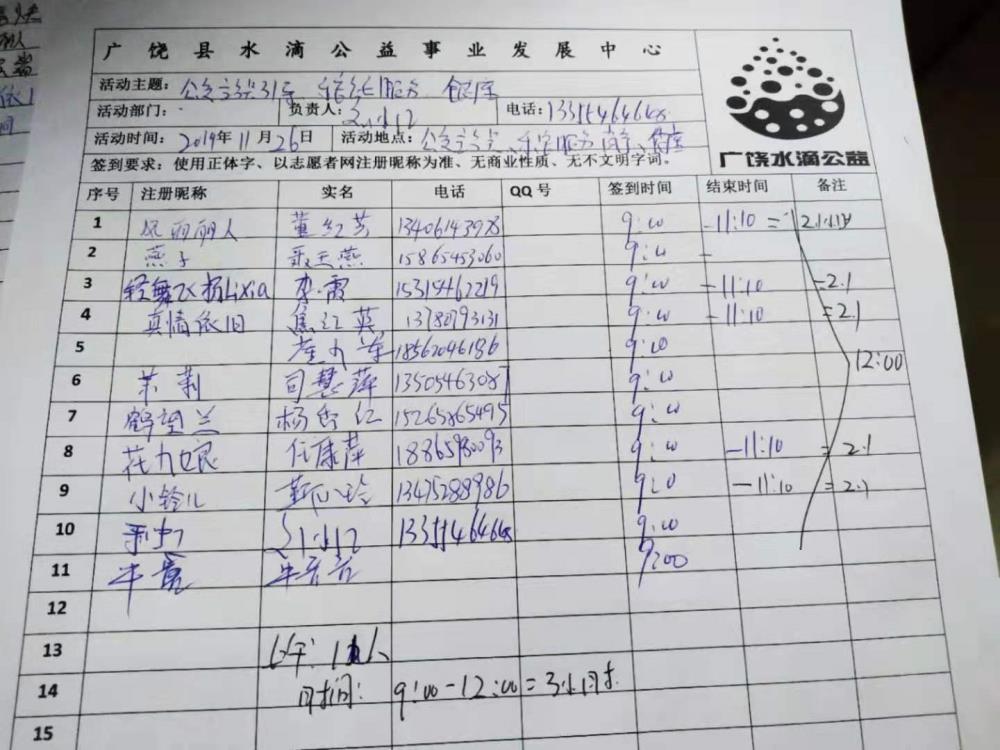 广饶县水滴公益事业发展中心
活动主题:
活动部门: 负责人: 电话:13355464648
活动时间: 2019年11月26日 活动地点:
签到要求: 使用正体字、以志愿者网注册昵称为准、无商业性质、无不文明字词。
广饶水滴公益
序号 注册昵称 实名 电话 QQ号 签到时间 结束时间 备注
1 风雨丽人 董红芸 13406143978 9:00 -11:10 =
2 燕子 聂玉燕 15865453060 9:00
3 轻舞飞扬Lixia 李霞 15315462219 9:00 -11:10 =2.1
4 真情依旧 焦红英 13780793131 9:00 -11:10 =2.1
5 18562046186 9:00
12:00
6 茉莉 司慧萍 13505463087 9:00
7 鹤望兰 杨红 15265865495 9:00
8 任康萍 18865980093 9:00 -11:10 =2.1
9 小铃儿 靳心玲 13475288986 9:00 -11:10 =2.1
10 13355464648 9:00
11 牛亮 9:00
12
13
14 时间: 9:00-12:00=3小时
15